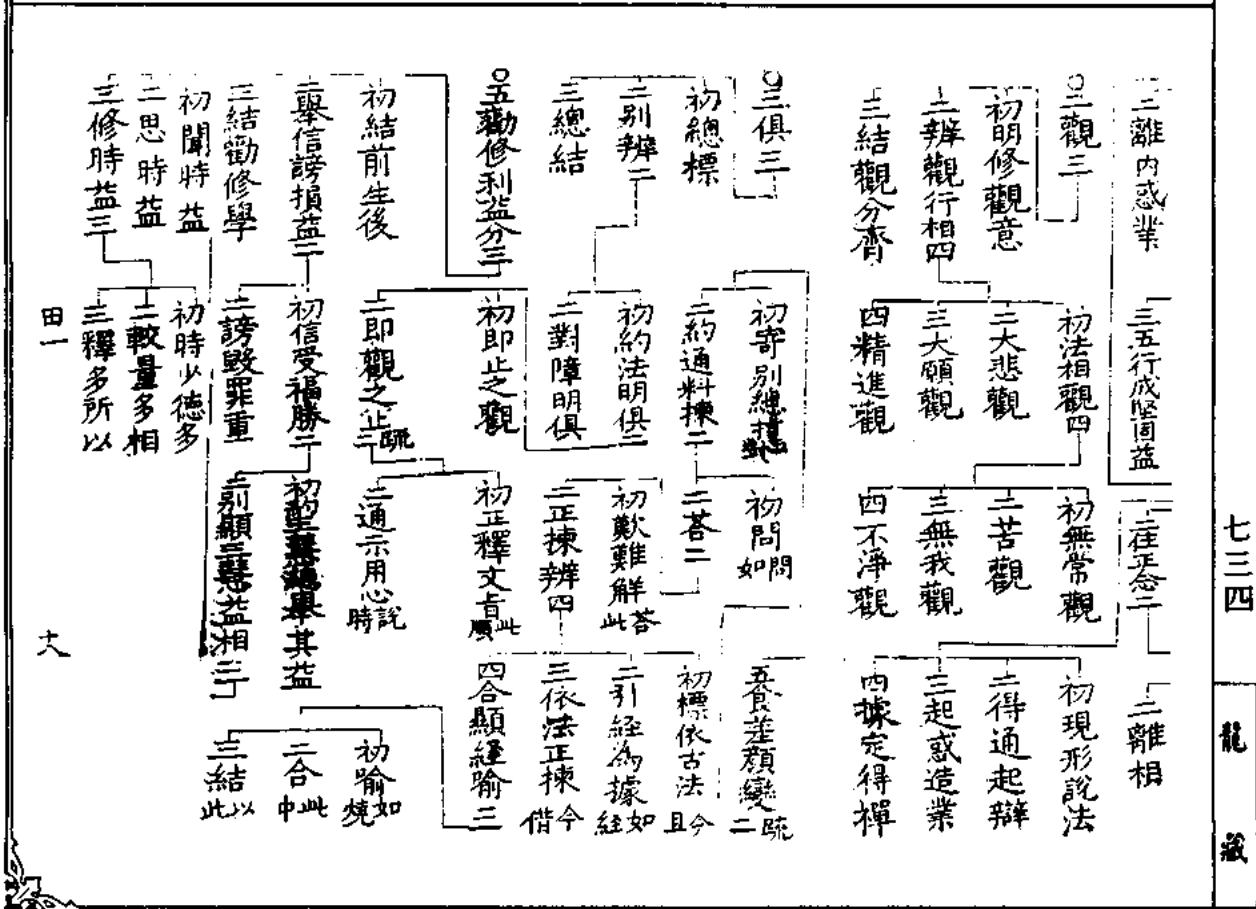 七三四
龍藏
二離内惑業
三五行成堅固益
二住正念二
二離相
○二觀三
初明修觀意
二辨觀行相四
三結觀分齊
初法相觀四
二大悲觀
三大願觀
四精進觀
初無常觀
二苦觀
三無我觀
四不淨觀
初現形說法
二得通起辯
三起惑造業
四據定得禪
○三俱三
初總標
二别辨二
三總結
初寄别總
二約通料揀二
初約法明俱二
二對障明俱
初問如問
二荅二
初歎難解此荅
二正揀辨四
五食差顏變二疏
初標依古法且今
二引経為據経如
三依法正揀偕今
四合顯経喻三
○五勸修利益分三
初結前生後
二舉信謗損益二
三結勸修學
初即止之觀
二即觀之止二疏
初正釋文旨順此
二通示用心時說
初信受福勝二
二謗毀罪重
其益
二别顯三慧益相三
初喻燒如
二合中此
三結此以
初聞時益
二思時益
三修時益三
初時少德多
二較量多相
三釋多所以
田一
十八